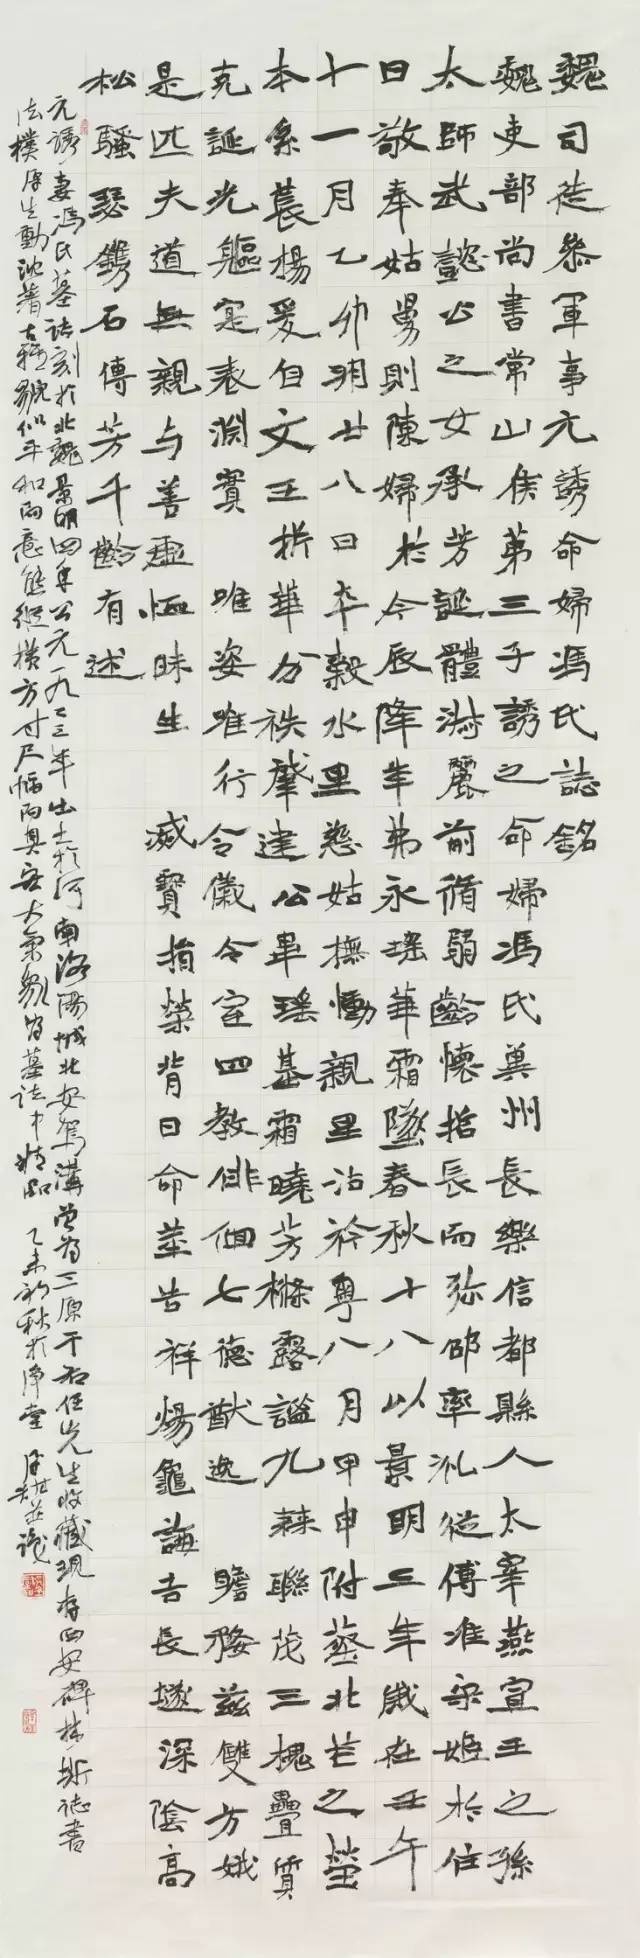 魏司徒參軍事元誘命婦馮氏誌銘
魏吏部尚書常山侯第三子誘之命婦馮氏冀州長樂信都縣人太宰燕宣王之孫
太師武懿公之女承芳誕體淑麗前脩弱齡懷哲長而弥邵率礼從傅准宋姬於往
日敬奉姑舅則陳婦於今辰降年弗永瑤華霜墜春秋十八以景明三年歲在壬午
十一月乙卯朔廿八日卒穀水里慈姑撫慟親里沾衿粵八月甲申附葬北芒之塋
本系萇楊爰自文王析華分祑肇建公畢瑤基霜曉芳條露謐九棘聯茂三槐疊質
克誕光軀寔表淵實 唯姿唯行令儀令室四教俳佪七德猷逸 瞻發茲雙方娥
是匹夫道無親与善虛恤昧生 滅賢損榮背日命筮告祥煬龜誨吉長埏深陰高
松騷瑟鐫石傳芳千齡有述
元誘妻馮氏墓誌刻於北魏景明四年公元一九二三年出土於河南洛陽城北安駕溝曾為三原于右任先生收藏現存西安碑林斯誌書
法樸厚生動沈著古穩貌似平和而意態縱橫方寸尺幅而具宏大氣象為墓誌中精品 乙未初秋於淨堂 並識